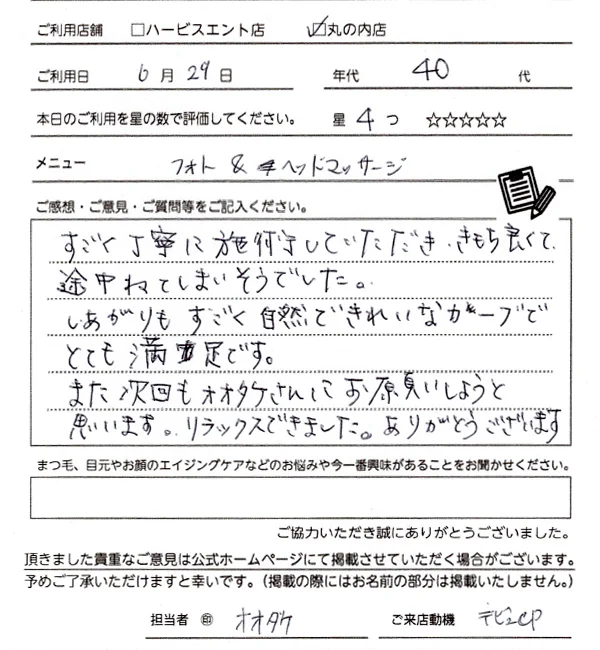 ご利用店舗 □ハービスエント店 ☑丸の内店
ご利用日 6月29日 年代 40代
本日のご利用を星の数で評価してください。 星 4つ ☆☆☆☆☆
メニュー フォト & ヘッドマッサージ
ご感想・ご意見・ご質問等をご記入ください。
すごく丁寧に施術をしていただき、きもち良くて、
途中ねてしまいそうでした。
しあがりも すごく自然できれいなカーブで
とても満足です。
また次回もオオタケさんにお願いしようと
思います。リラックスできました。ありがとうございます
まつ毛、目元やお顔のエイジングケアなどのお悩みや今一番興味があることをお聞かせください。
ご協力いただき誠にありがとうございました。
頂きました貴重なご意見は公式ホームページにて掲載させていただく場合がございます。
予めご了承いただけますと幸いです。（掲載の際にはお名前の部分は掲載いたしません。）
担当者 ㊞ オオタケ ご来店動機 デビューCP